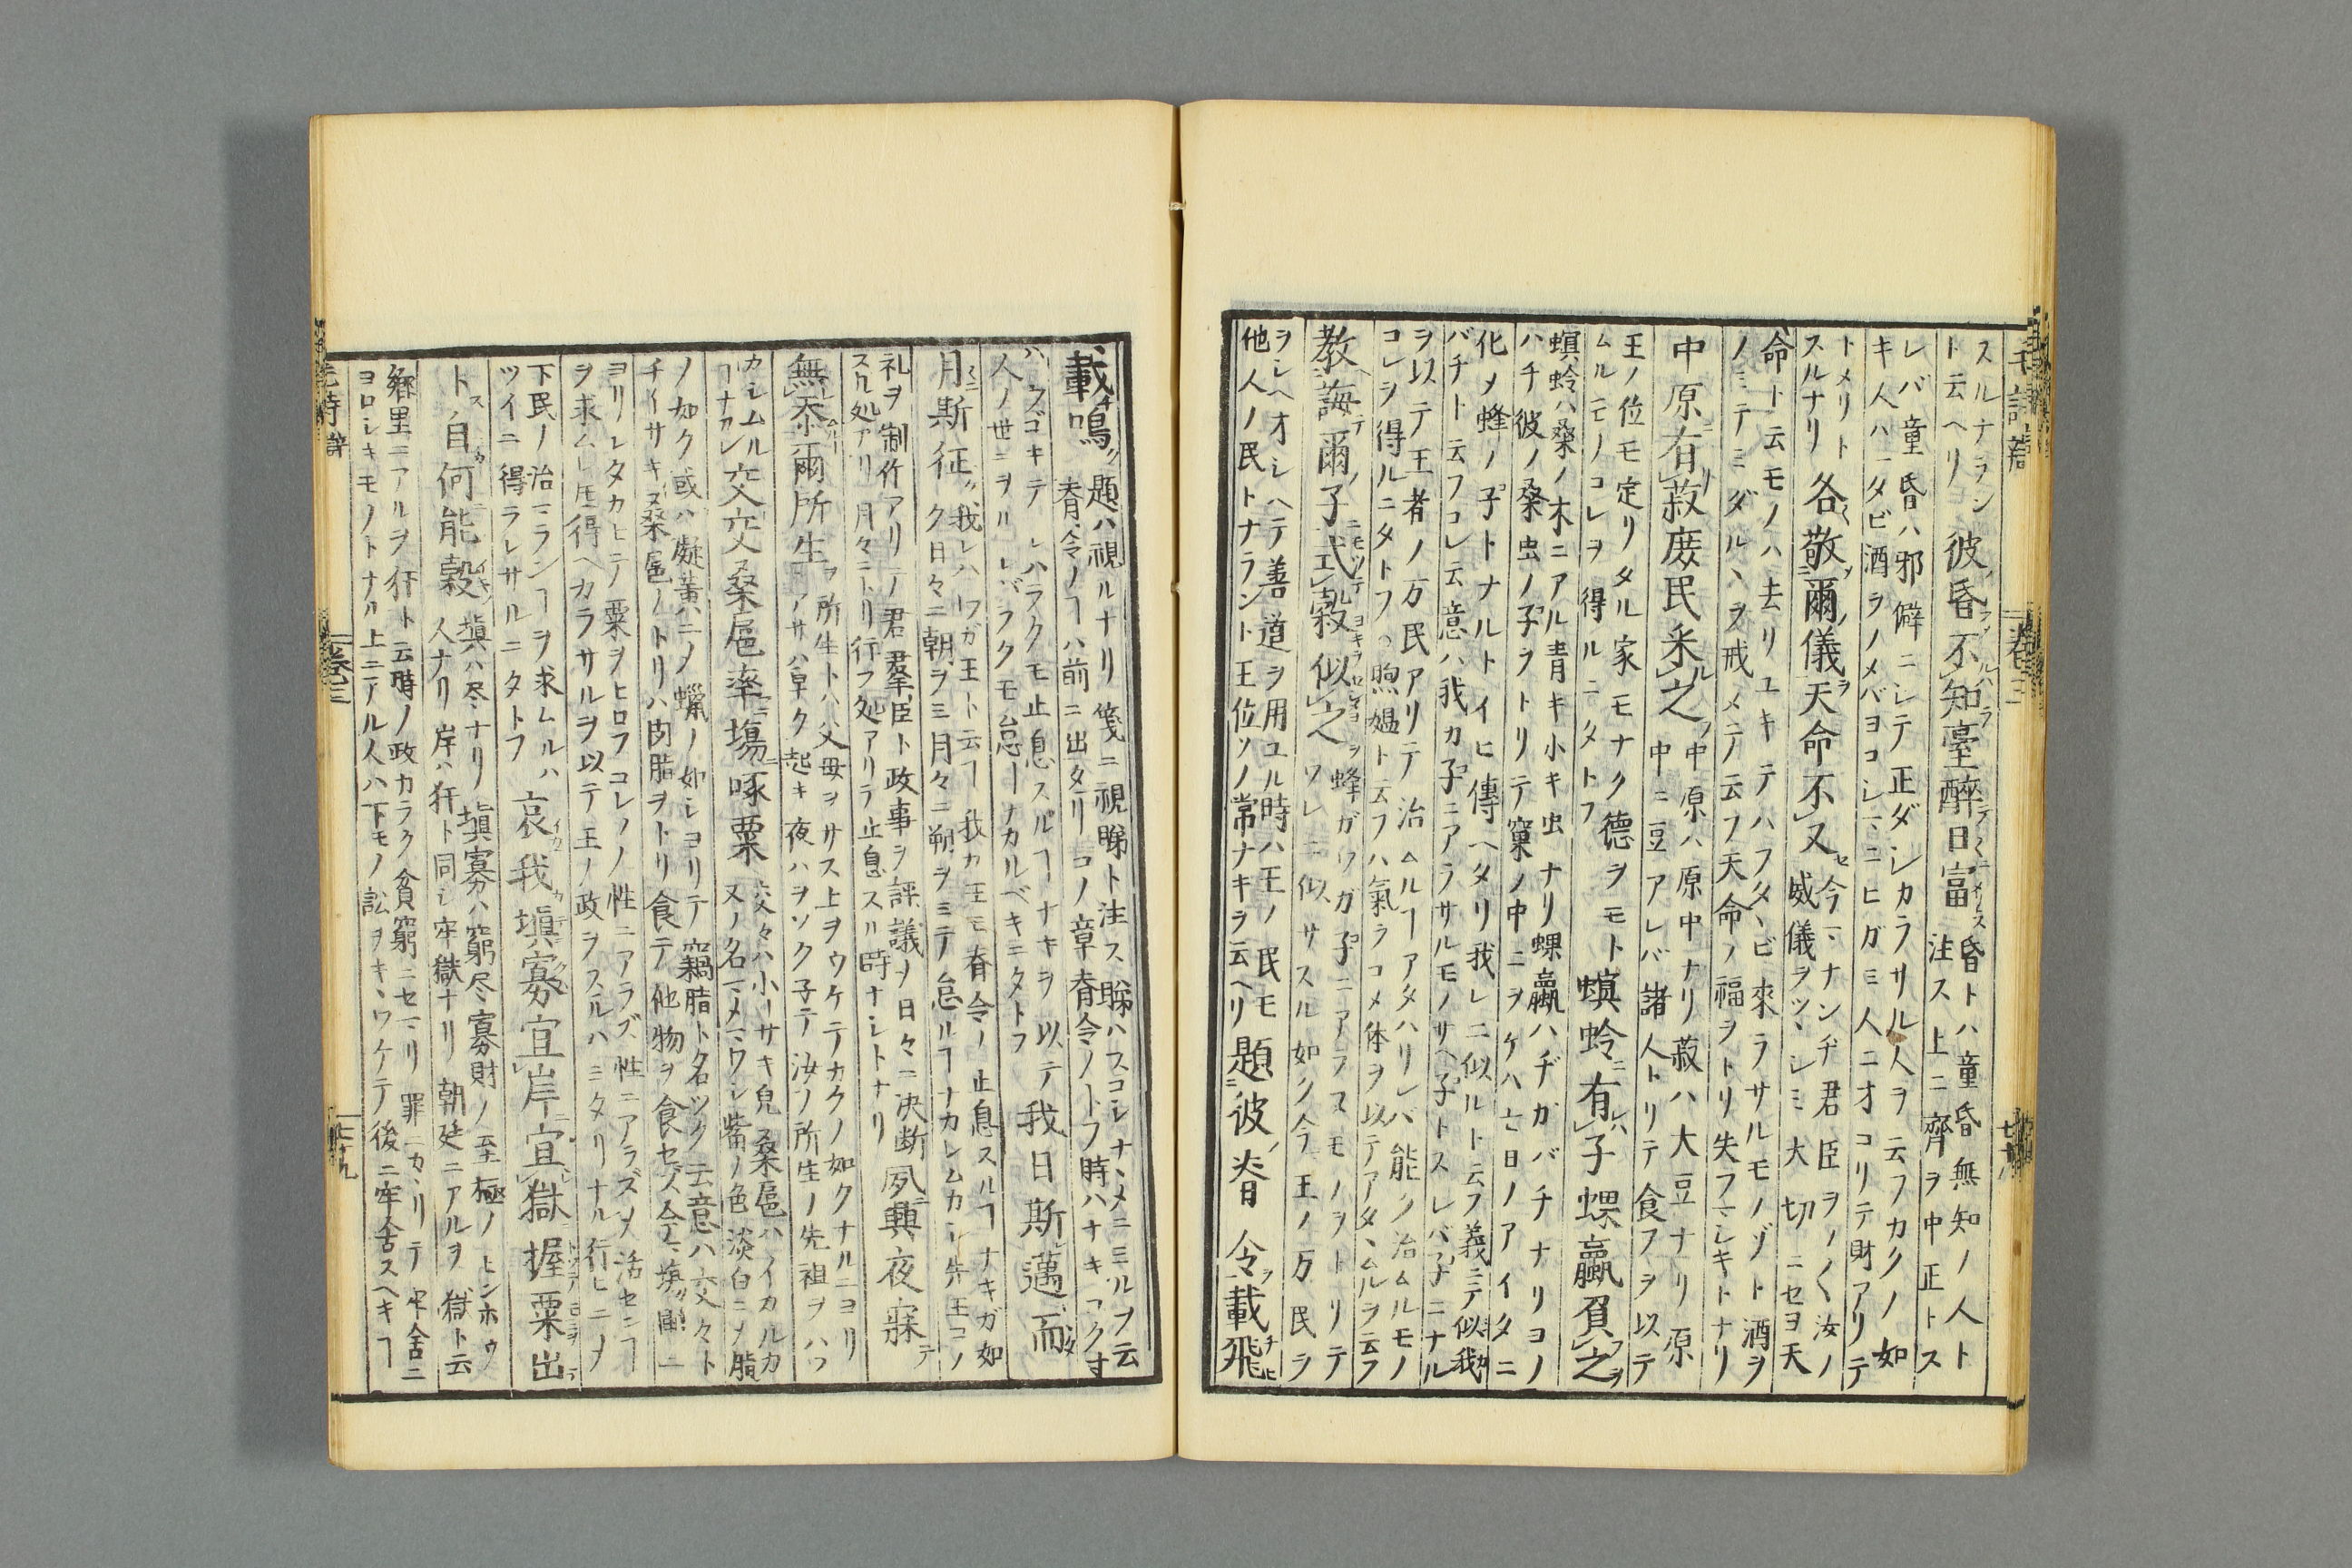 スルナラン
ト云ヘリ
彼昏不知壹醉日富
昏トハ童昏無知ノ人ト
注ス上ニ齊ヲ中正トス
レバ童昏ハ邪僻ニシテ正ダシカラサル人ヲ云フカクノ如
キ人ハ一タビ酒ヲノメバヨコシマニヒガミ人ニオコリテ財アリテ
トメリト
スルナリ
各敬爾儀天命不又
今マナンヂ君臣ヲノ〱汝ノ
威儀ヲツヽシミ大切ニセヨ天
命ト云モノハ去リユキテハフタヽビ來ラサルモノゾト酒ヲ
ノミテミダルヽヲ戒メテ云フ天命ノ福ヲトリ失フマシキトナリ
中原有菽庻民采之
中原ハ原中ナリ菽ハ大豆ナリ原
中ニ豆アレバ諸人トリテ食フヲ以テ
王ノ位モ定リタル家モナク德ヲモト
ムルモノコレヲ得ルニタトフ
螟蛉有子蜾蠃負之
螟蛉ハ桑ノ木ニアル青キ小キ虫ナリ蜾蠃ハヂガバチナリヨノ
ハチ彼ノ桑虫ノ子ヲトリテ窠ノ中ニヲケハ七日ノアイタニ
化メ蜂ノ子トナルトイヒ傳ヘタリ我レニ似ルト云フ義ニテ似我
バチト云フコレ云意ハ我カ子ニアラサルモノサヘ子トスレバ子ニナル
ヲ以テ王者ノ万民アリテ治ムルヿアタハリレバ能ク治ムルモノ
コレヲ得ルニタトフ煦嫗ト云フハ氣ヲコメ体ヲ以テアタヽムルヲ云フ
教誨爾子式穀似之
蜂ガワガ子ニアラヌモノヲトリテ
ワレニ似サスル如ク今王ノ万民ヲ
ヲシヘオシヘテ善道ヲ用ユル時ハ王ノ民モ
他人ノ民トナラント王位ソノ常ナキヲ云ヘリ
題彼脊令載飛
載鳴
題ハ視ルナリ箋ニ視睇ト注ス睇ハスコシナヽメニミルヲ云
脊令ノヿハ前ニ出タリコノ章脊令ノトフ時ハナキ
ウゴキテシハラクモ止息スルヿナキヲ以テ
人ノ世ニヲルシバラクモ怠ーナカルベキニタトフ
我日斯邁而
月斯征
我レハワガ王ト云ヿ我カ王モ脊令ノ止息スルヿナキガ如
ク日々ニ朝ヲミ月々ニ朔ヲミテ怠ルヿナカレムカシ先王コノ
礼ヲ制作アリテ君羣臣ト政事ヲ評議メ日々ニ决断
スル処アリ月々ニトリ行フ処アリテ止息スル時ナシトナリ
夙興夜寐
無忝爾所生
所生トハ父母ヲサス上ヲウケテカクノ如クナルニヨリ
アサハ早ク起キ夜ハヲソク子テ汝ソ所生ノ先祖ヲハツ
カシムル
ヿナカレ
交交桑扈率場啄粟
交々ハ小ーサキ皃桑扈ハイカルカ
又ノ名マメマワシ觜ノ色淡白ニメ脂
ノ如ク或ハ凝黃ニメ蠟ノ如シヨリテ竊脂ト名ツク云意ハ交々ト
チイサキ桑扈ノトリハ肉脂ヲトリ食テ他物ヲ食セズ今マ塲圃ニ
ヨリシタカヒテ粟ヲヒロフコレソノ性ニアラズ性ニアラズメ活センヿ
ヲ求ムレ𪜈得ヘカラサルヲ以テ王ノ政ヲスルハミタリナル行ヒニメ
下民ノ治マランヿヲ求ムルハ
ツイニ得ラレサルニタトフ
哀我塡寡宜岸宜獄握粟出
ト自何能穀
塡ハ尽ナリ塡寡ハ窮尽寡財ノ至極ノヒンホウ
人ナリ岸ハ犴ト同シ牢獄ナリ朝廷ニアルヲ獄ト云
鄉里ニアルヲ犴ト云時ノ政カラク貧窮ニセマリ罪ニカヽリテ牢舍ニ
ヨロシキモノトナル上ニアル人ハ下モノ訟ヲキヽワケテ後ニ牢舍スヘキヿ
毛詩
卷三
七十九